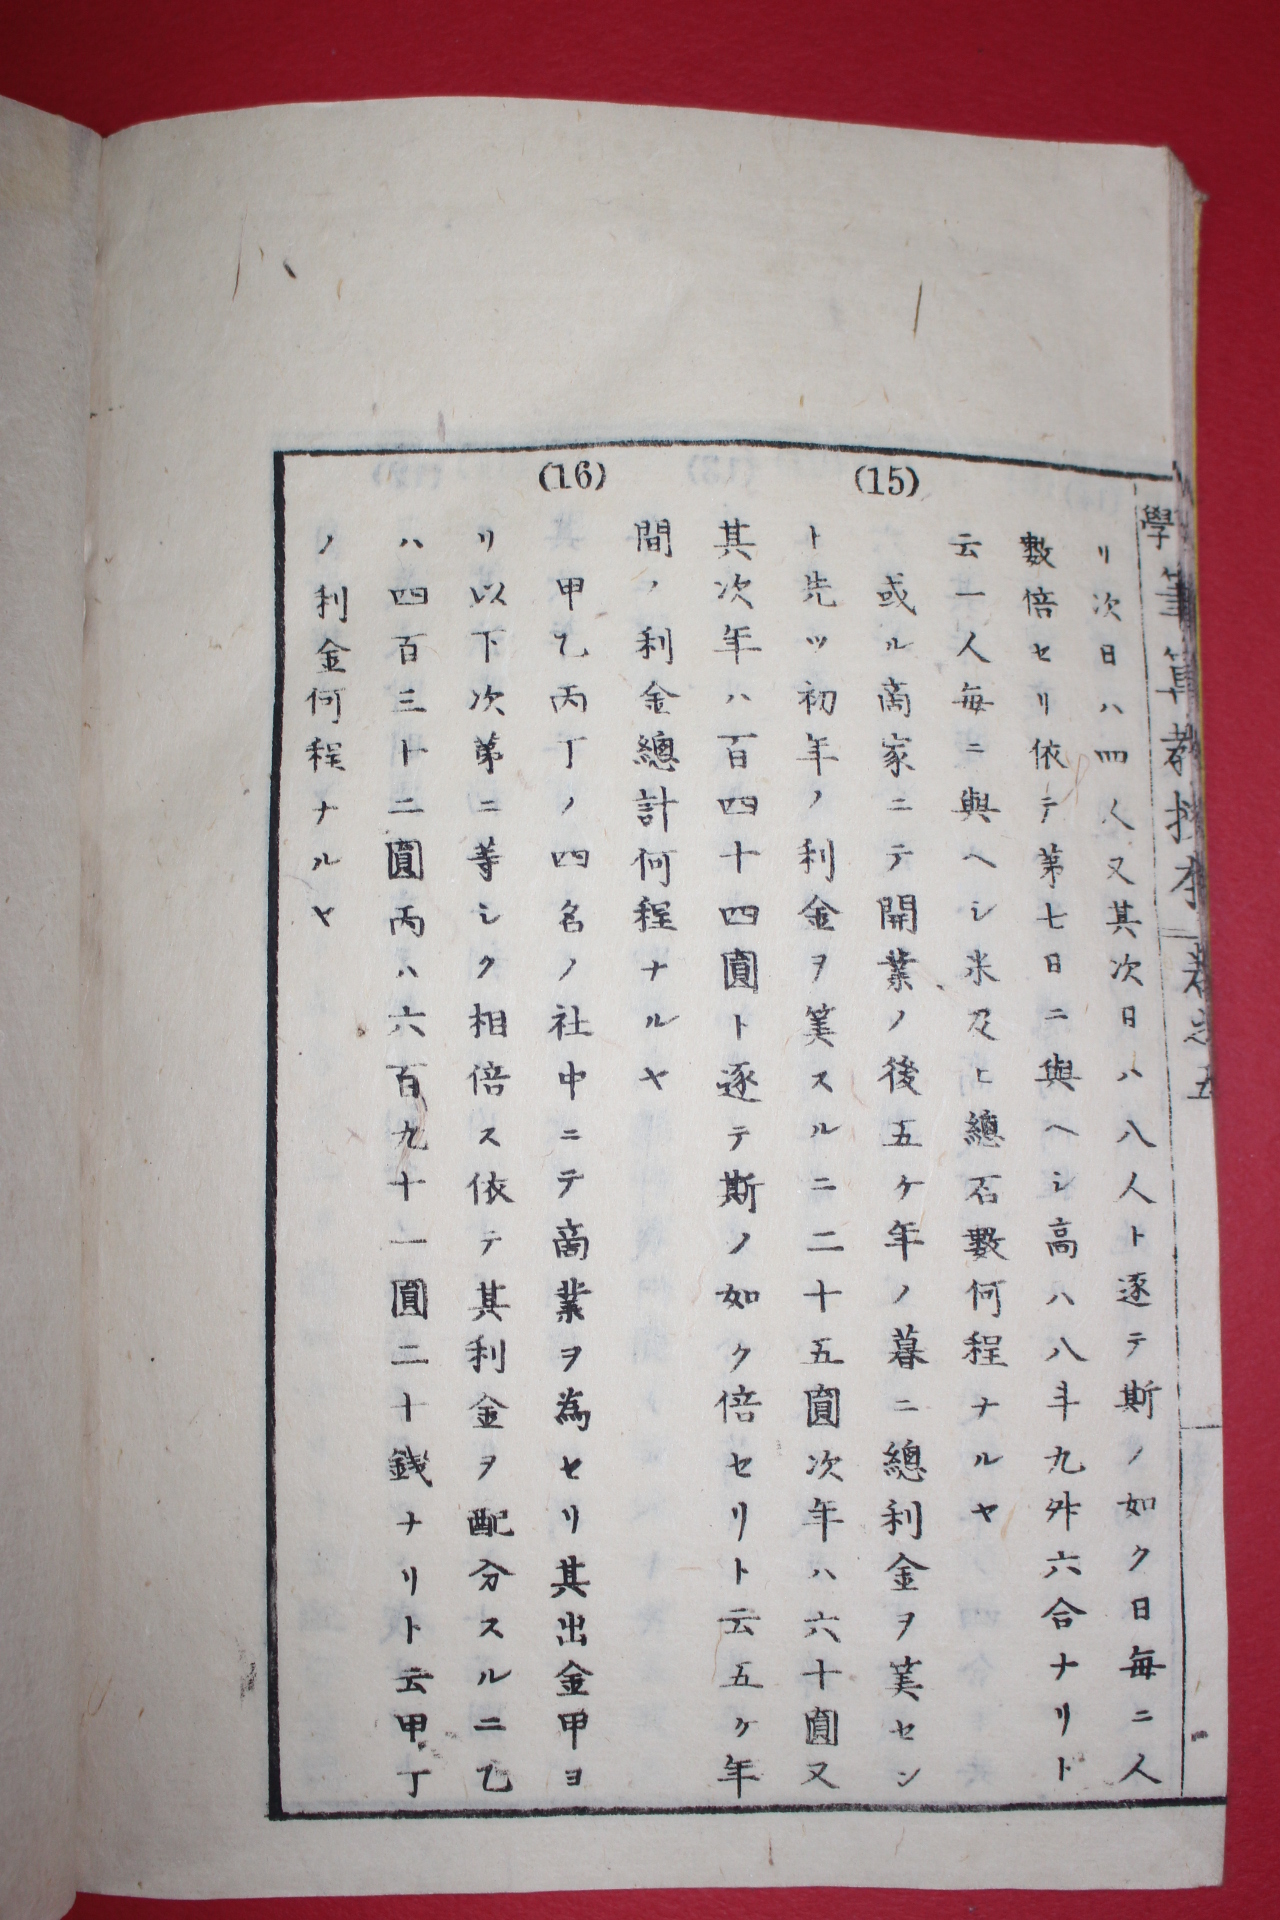 學筆算教授本 卷之五
リ次日ハ四人又其次日ハ八人ト逐テ斯ノ如ク日毎ニ人
數倍セリ依テ第七日ニ與ヘシ高ハ八斗九升六合ナリト
云一人毎ニ與ヘシ米及ヒ總石數何程ナルヤ
(15)
或ル商家ニテ開業ノ後五ケ年ノ暮ニ總利金ヲ筭セン
ト先ツ初年ノ利金ヲ筭スルニ二十五圓次年ハ六十圓又
其次年ハ百四十四圓ト逐テ斯ノ如ク倍セリト云五ケ年
間ノ利金總計何程ナルヤ
(16)
甲乙丙丁ノ四名ノ社中ニテ商業ヲ為セリ其出金甲ヨ
リ以下次第ニ等シク相倍ス依テ其利金ヲ配分スルニ乙
ハ四百三十二圓丙ハ六百九十一圓二十錢ナリト云甲丁
ノ利金何程ナルヤ